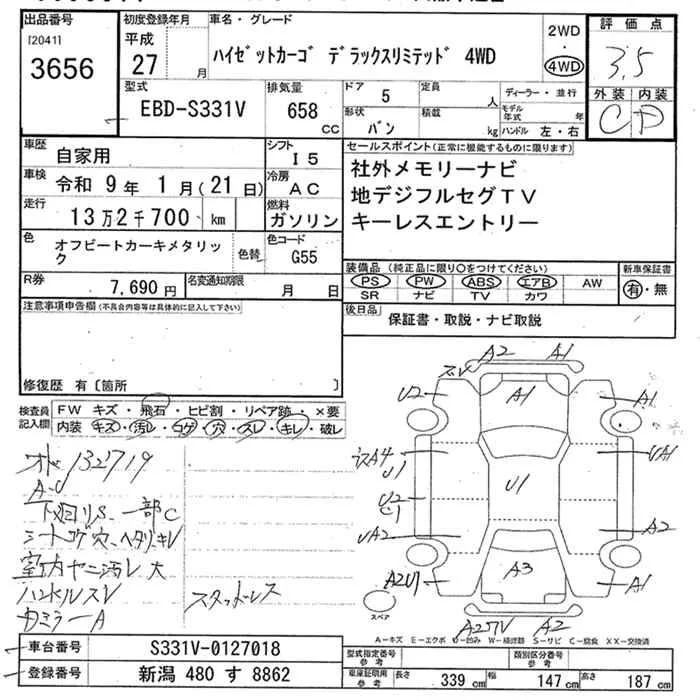 出品番号
[2041]
3656
初度登録年月
平成
27 月
車名・グレード
ハイゼットカーゴ デラックスリミテッド 4WD
2WD
・
4WD
評価点
3.5
外装 内装
C D
型式
EBD-S331V
排気量
658 CC
ドア 5
形状 バン
定員 人
積載 kg
ディーラー・並行
モデル年式 年
ハンドル 左・右
車歴
自家用
シフト
I5
車検
令和 9年 1月(21日)
冷房
AC
走行
13万2千700 km
燃料
ガソリン
色
オフビートカーキメタリック
色替
色コード
G55
R券
7,690円
名変通知期限
月 日
セールスポイント(正常に機能するものに限ります)
社外メモリーナビ
地デジフルセグTV
キーレスエントリー
装備品(純正品に限り○をつけてください)
PS PW ABS エアB AW
SR ナビ TV カワ
新車保証書
有・無
後日品
保証書・取説・ナビ取説
注意事項申告欄(不具合内容等は具体的に記入して下さい)
修復歴 有〔箇所 〕
検査員記入欄
FW キズ・飛石・ヒビ割・リペア跡・×要
内装 キズ・汚レ・コゲ・穴・スレ・キレ・破レ
132719
A-U
下回りS、一部C
シートコゲ穴、ヘタリ、キレ
室内ヤニ汚レ大
ハンドルスレ
カミラーA
スタッドレス
A2 A1
スレ
U2
A1
A1
A4
U1
UA1
U2
C1
U1
UA2
A2
A2U1
A3
A1
A2
スペア
A-キズ E-エクボ U-凹み W-補修跡 S-サビ C-腐食 XX-交換済
車台番号
S331V-0127018
登録番号
新潟 480 す 8862
型式指定番号
参考
類別区分番号
参考
車庫証明用
参考
長さ 339 cm
幅 147 cm
高さ 187 cm